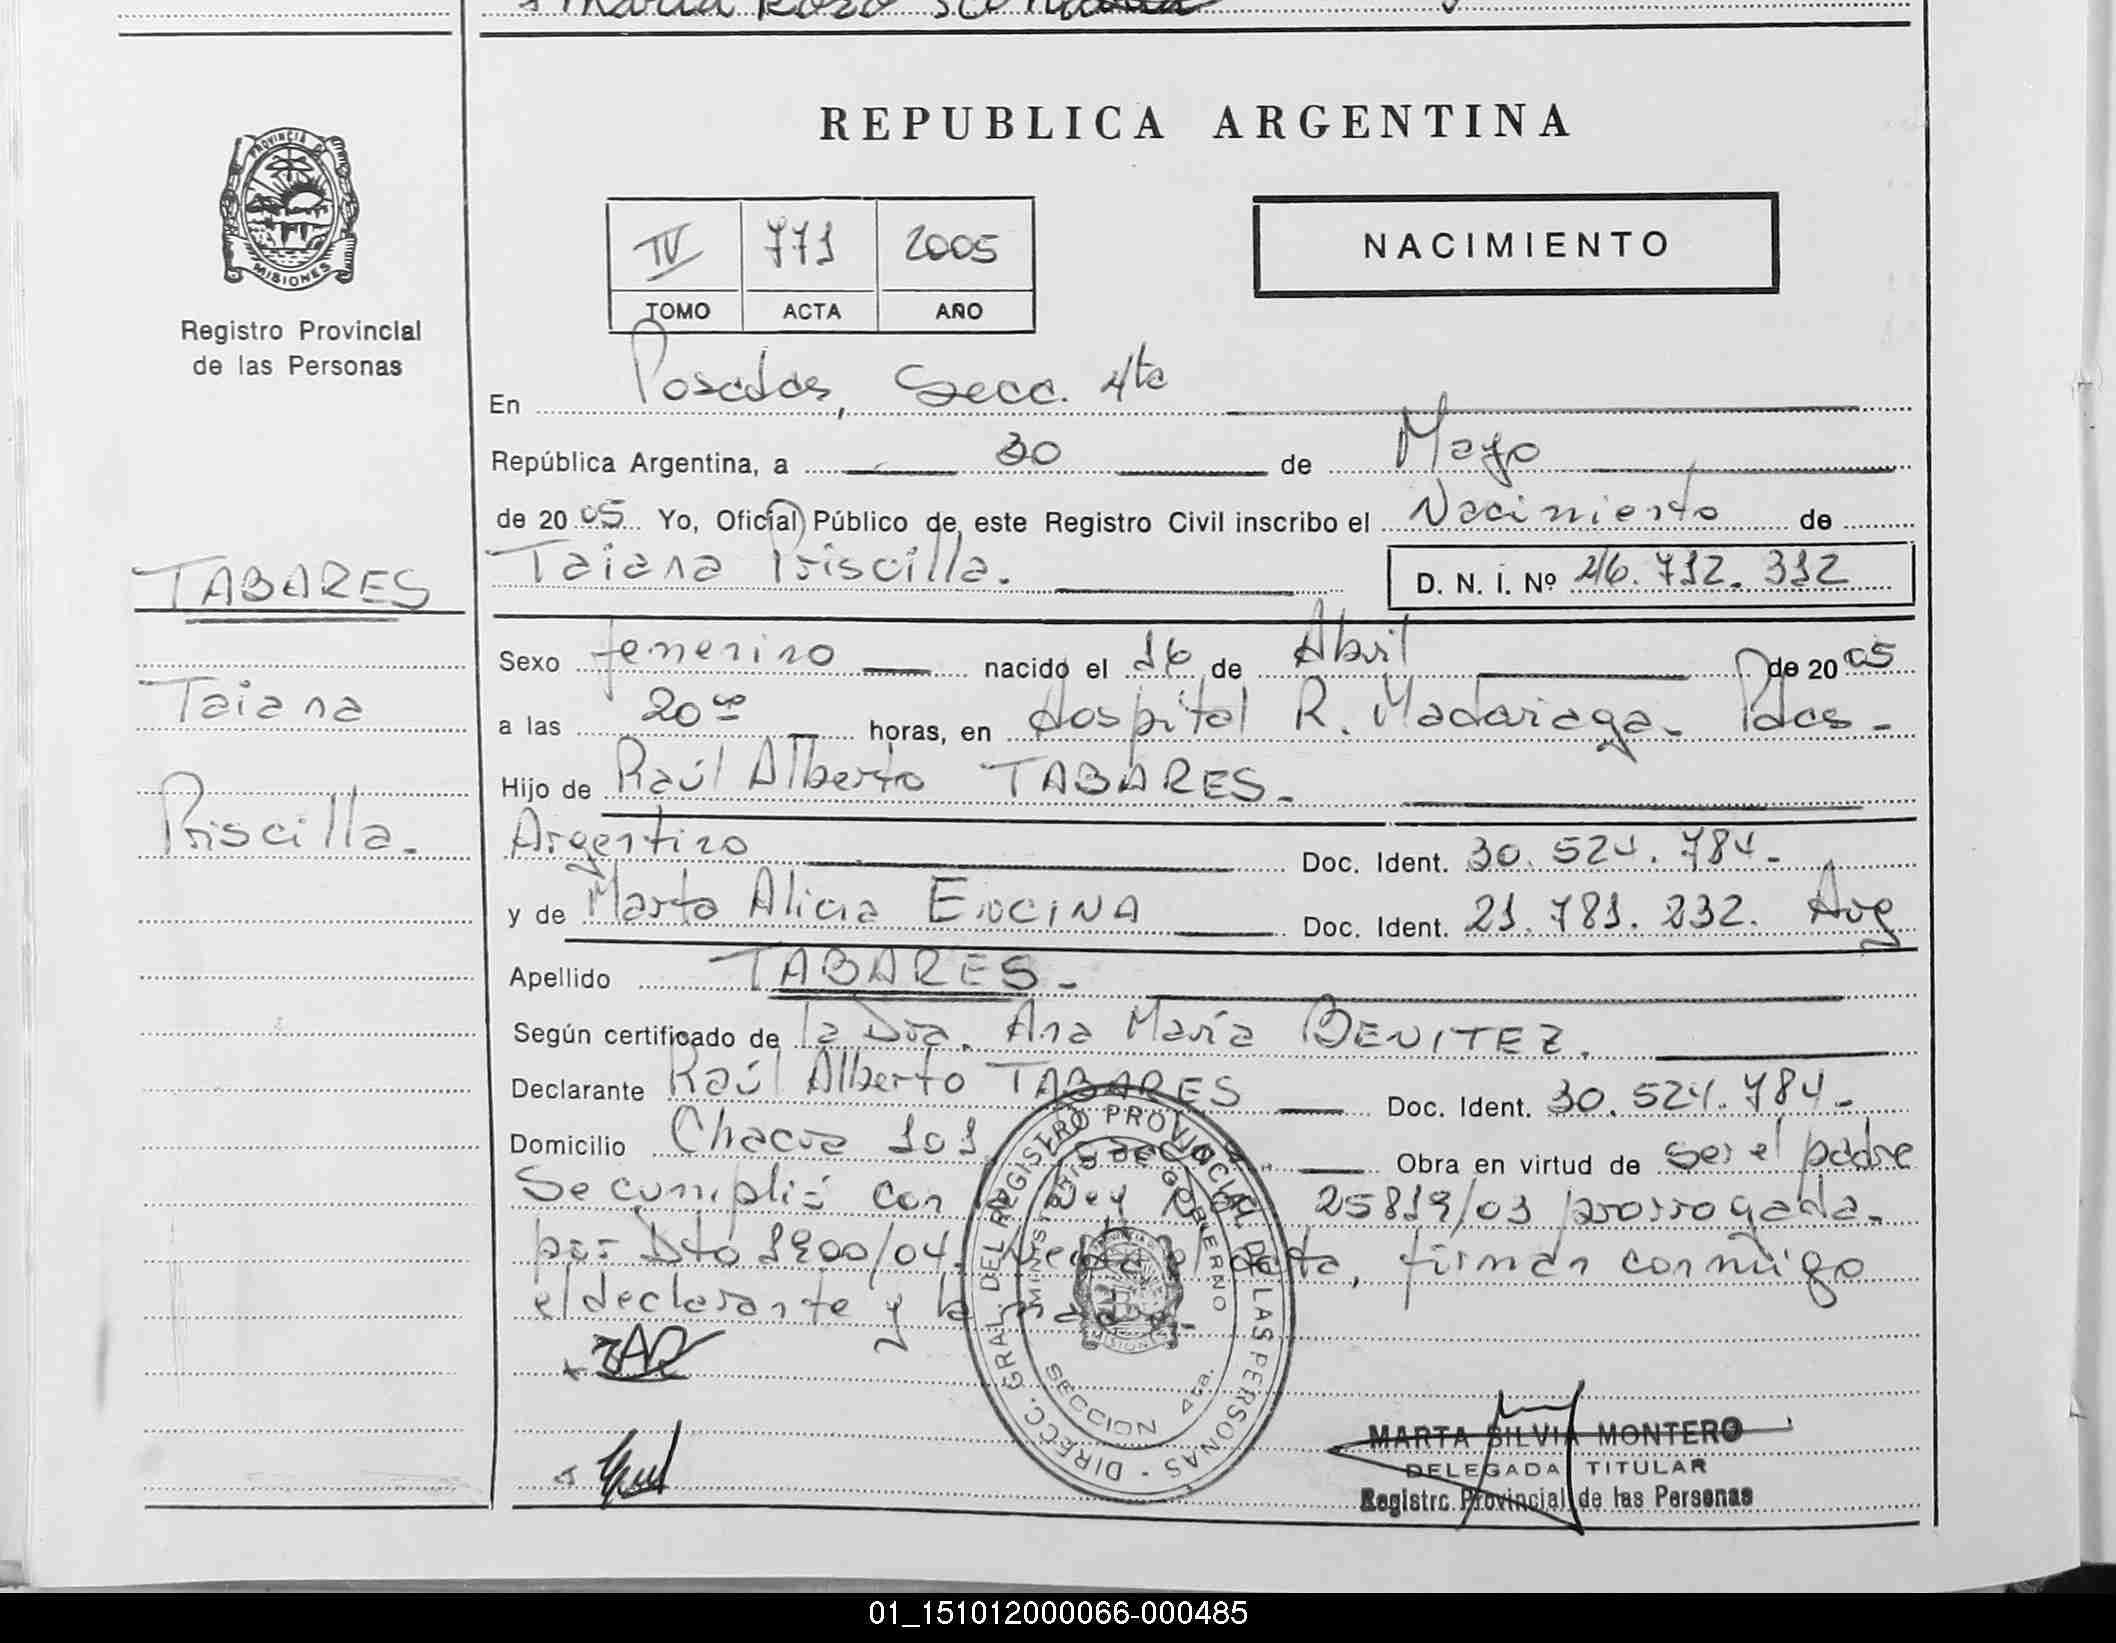 REPUBLICA ARGENTINA
PROVINCIA DE
MISIONES
Registro Provincial
de las Personas
IV 771 2005
TOMO ACTA AÑO
NACIMIENTO
En Posadas, Secc. 4ta
República Argentina, a 30 de Mayo
de 20 05 Yo, Oficial Público de este Registro Civil inscribo el Nacimiento de
Taiana Priscilla.
D. N. I. Nº 46.712.312
TABARES
Taiana
Priscilla.
Sexo femenino nacido el 16 de Abril de 20 05
a las 20 horas, en Hospital R. Madariaga. Pdas.
Hijo de Raúl Alberto TABARES.
Argentino Doc. Ident. 30.524.784.
y de Marta Alicia ENCINA Doc. Ident. 21.781.232. Arg
Apellido TABARES.
Según certificado de la Dra. Ana María BENITEZ.
Declarante Raúl Alberto TABARES Doc. Ident. 30.524.784.
Domicilio Chacra 101 Obra en virtud de ser el padre
Se cumplió con Ley 25819/03 prorrogada
por Dto 1900/04. acta, firman conmigo
el declarante y la madre.
DIRECC. GRAL. DEL REGISTRO PROVINCIAL DE LAS PERSONAS
MINISTERIO DE GOBIERNO
SECCION 4ta.
MARTA SILVIA MONTERO
DELEGADA TITULAR
Registro Provincial de las Personas
01_151012000066-000485